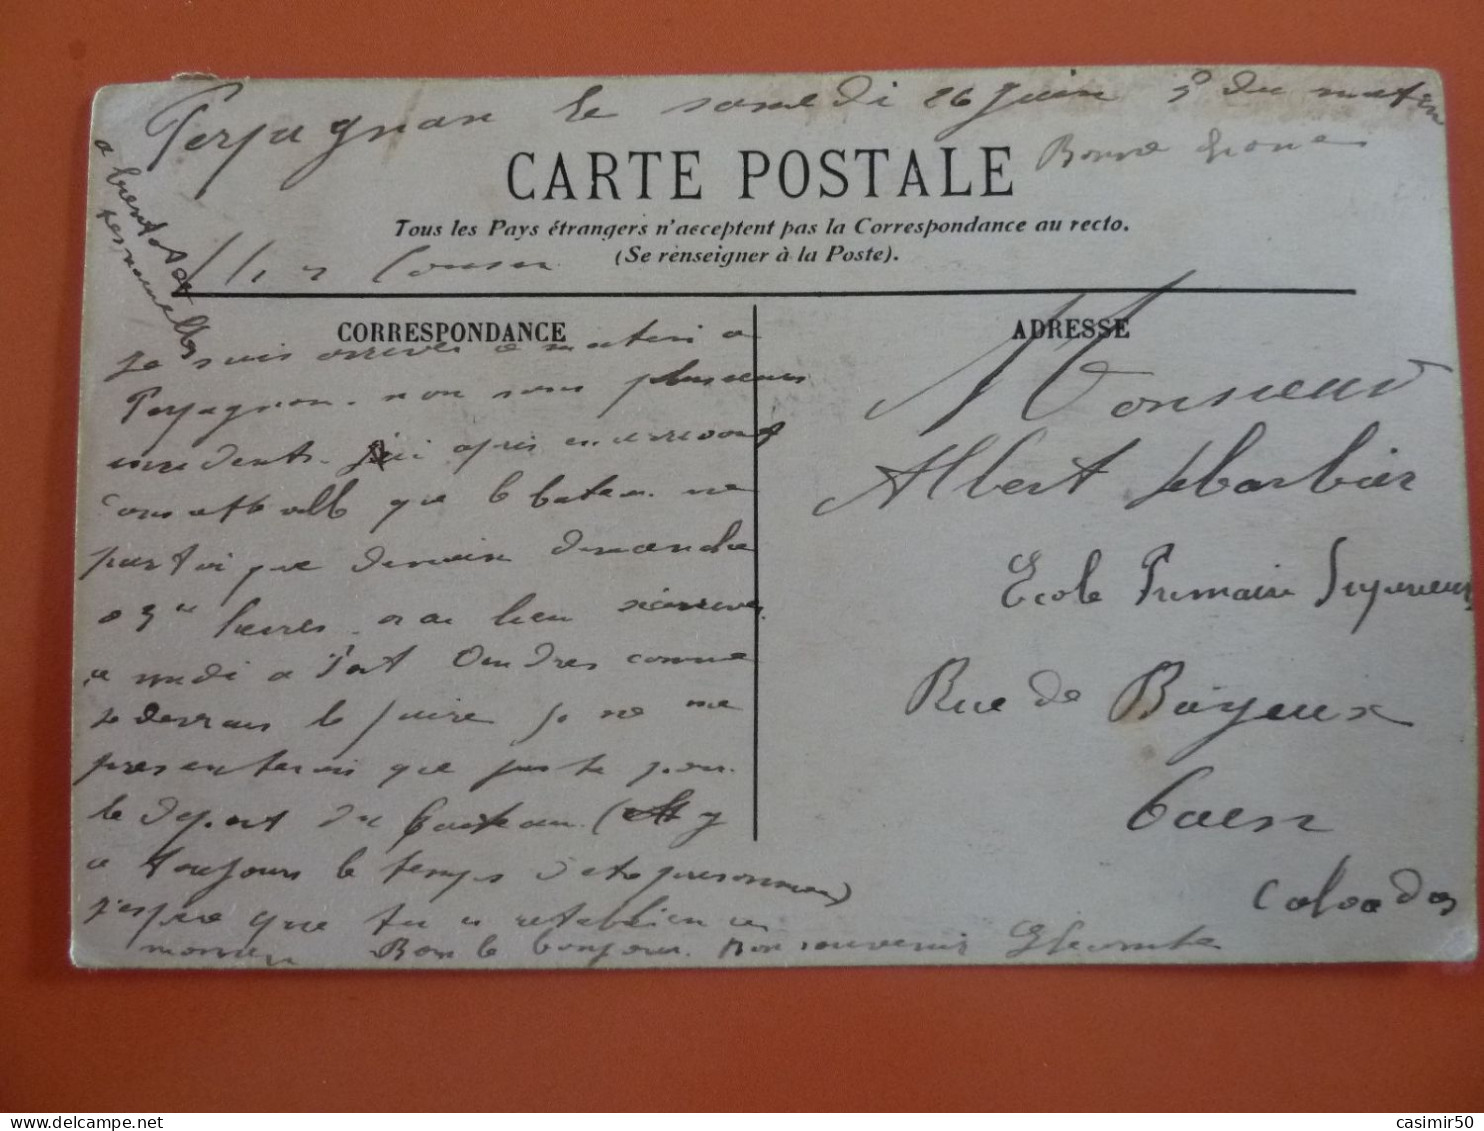 Perpagnan le samedi 26 Juin 5h du matin
Bonne
CARTE POSTALE
Tous les Pays étrangers n'acceptent pas la Correspondance au recto.
(Se renseigner à la Poste).
a bientot
Cousin
CORRESPONDANCE
Je suis arrivé ce matin a
Perpagnan. non sans plusieurs
incidents. après
que le bateau ne
part que demain dimanche
heures. au lieu
a midi a Port Vendres comme
je devrais le faire je ne me
presenterais que juste pour
le depart du bateau. (
a toujours le temps
j'espère que tu es retabli en ce
moment Bonjour. Bon souvenir GLecomte
ADRESSE
Monsieur
Albert Lebarbier
Ecole Primaire Superieure
Rue de Bayeux
Caen
Calvados
casimir50